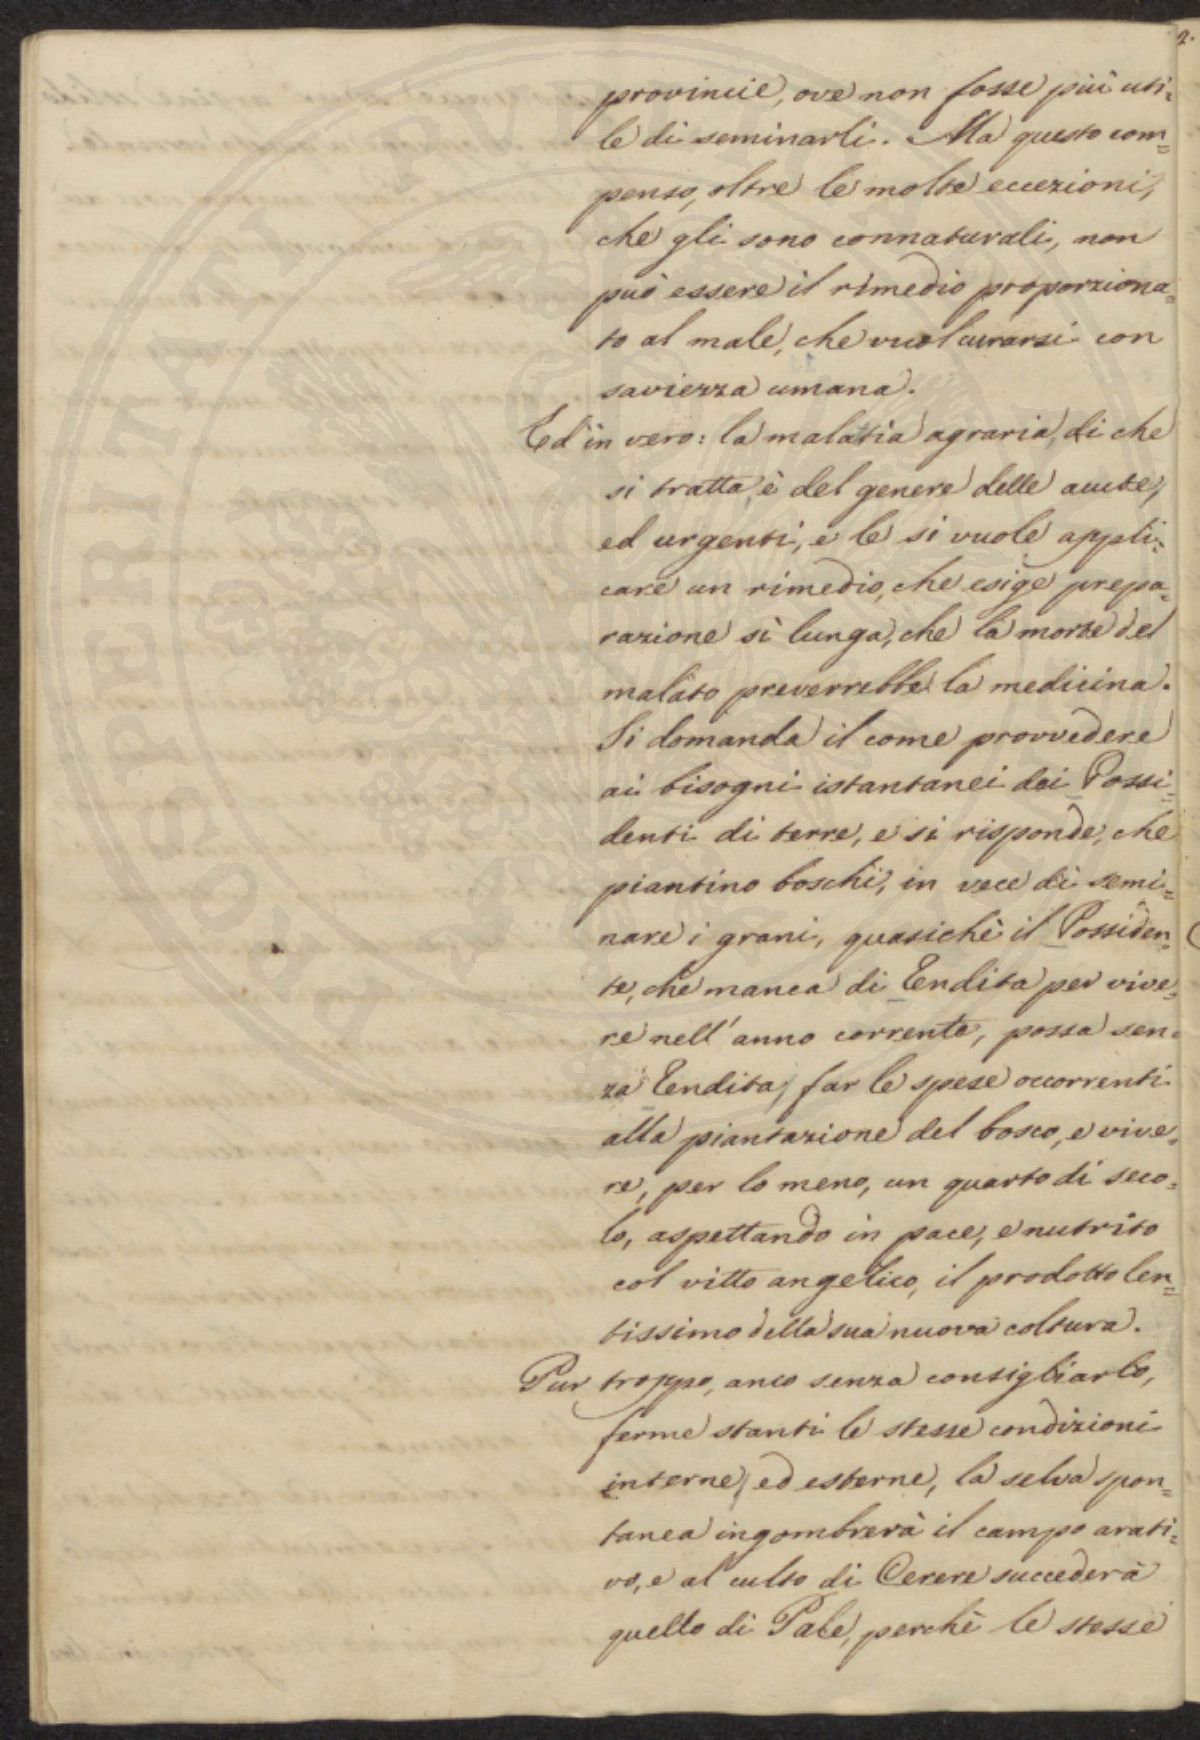 provincie, ove non fosse più uti=
le di seminarli. Ma questo com=
penso, oltre le molte eccezioni,
che gli sono connaturali, non
può essere il rimedio proporziona=
to al male, che vuol curarsi con
saviezza umana.
Ed in vero: la malatia agraria, di che
si tratta, è del genere delle acute,
ed urgenti, e le si vuole appli=
care un rimedio, che esige prepa=
razione sì lunga, che la morte del
malato preverrebbe la medicina.
Si domanda il come provvedere
ai bisogni istantanei dei Possi=
denti di terre, e si risponde, che
piantino boschi, in vece di semi=
nare i grani, quasichè il Possiden=
te, che manca di Rendita per vive=
re nell' anno corrente, possa sen=
za Rendita, far le spese occorrenti
alla piantazione del bosco, e vive=
re, per lo meno, un quarto di seco=
lo, aspettando in pace, e nutrito
col vitto angelico, il prodotto len=
tissimo della sua nuova coltura.
Pur troppo, anco senza consigliarlo,
ferme stanti le stesse condizioni
interne, ed esterne, la selva spon=
tanea ingombrerà il campo arati=
vo, e al culto di Cerere succederà
quello di Pale, perchè le stesse
PROSPERITATI PUBLICAE
2.